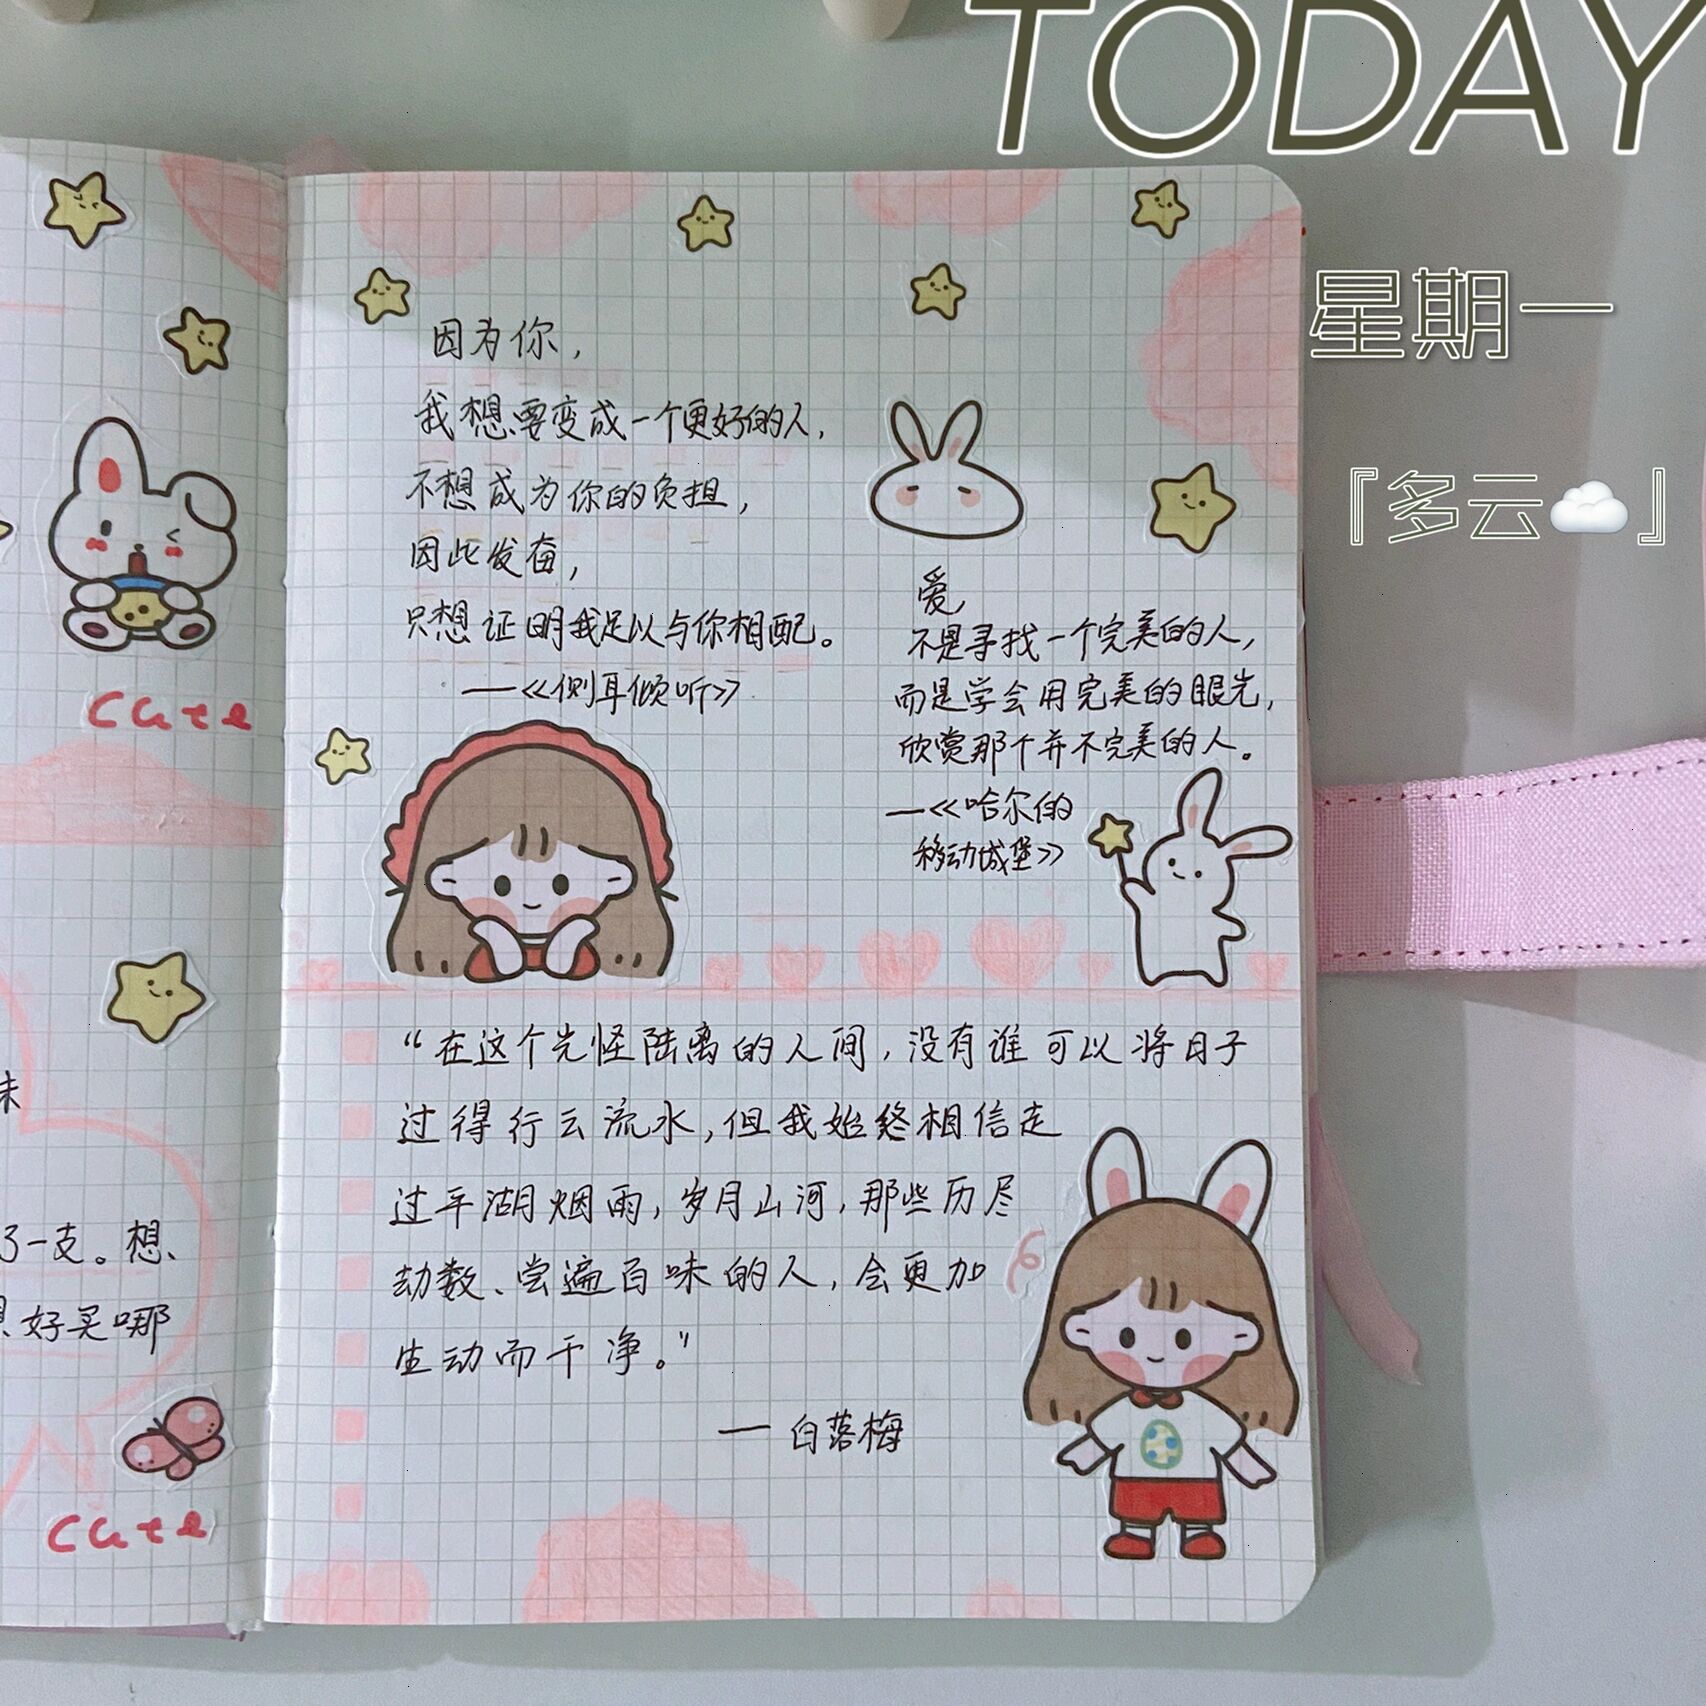 TODAY
星期一
『多云☁️』
因为你，
我想要变成一个更好的人，
不想成为你的负担，
因此发奋，
只想证明我足以与你相配。
——《侧耳倾听》
爱，
不是寻找一个完美的人，
而是学会用完美的眼光，
欣赏那个并不完美的人。
—《哈尔的
移动城堡》
“在这个光怪陆离的人间，没有谁可以将日子
过得行云流水，但我始终相信走
过平湖烟雨，岁月山河，那些历尽
劫数、尝遍百味的人，会更加
生动而干净。”
— 白落梅
Cute
味
了一支。想、
好买哪
Cute